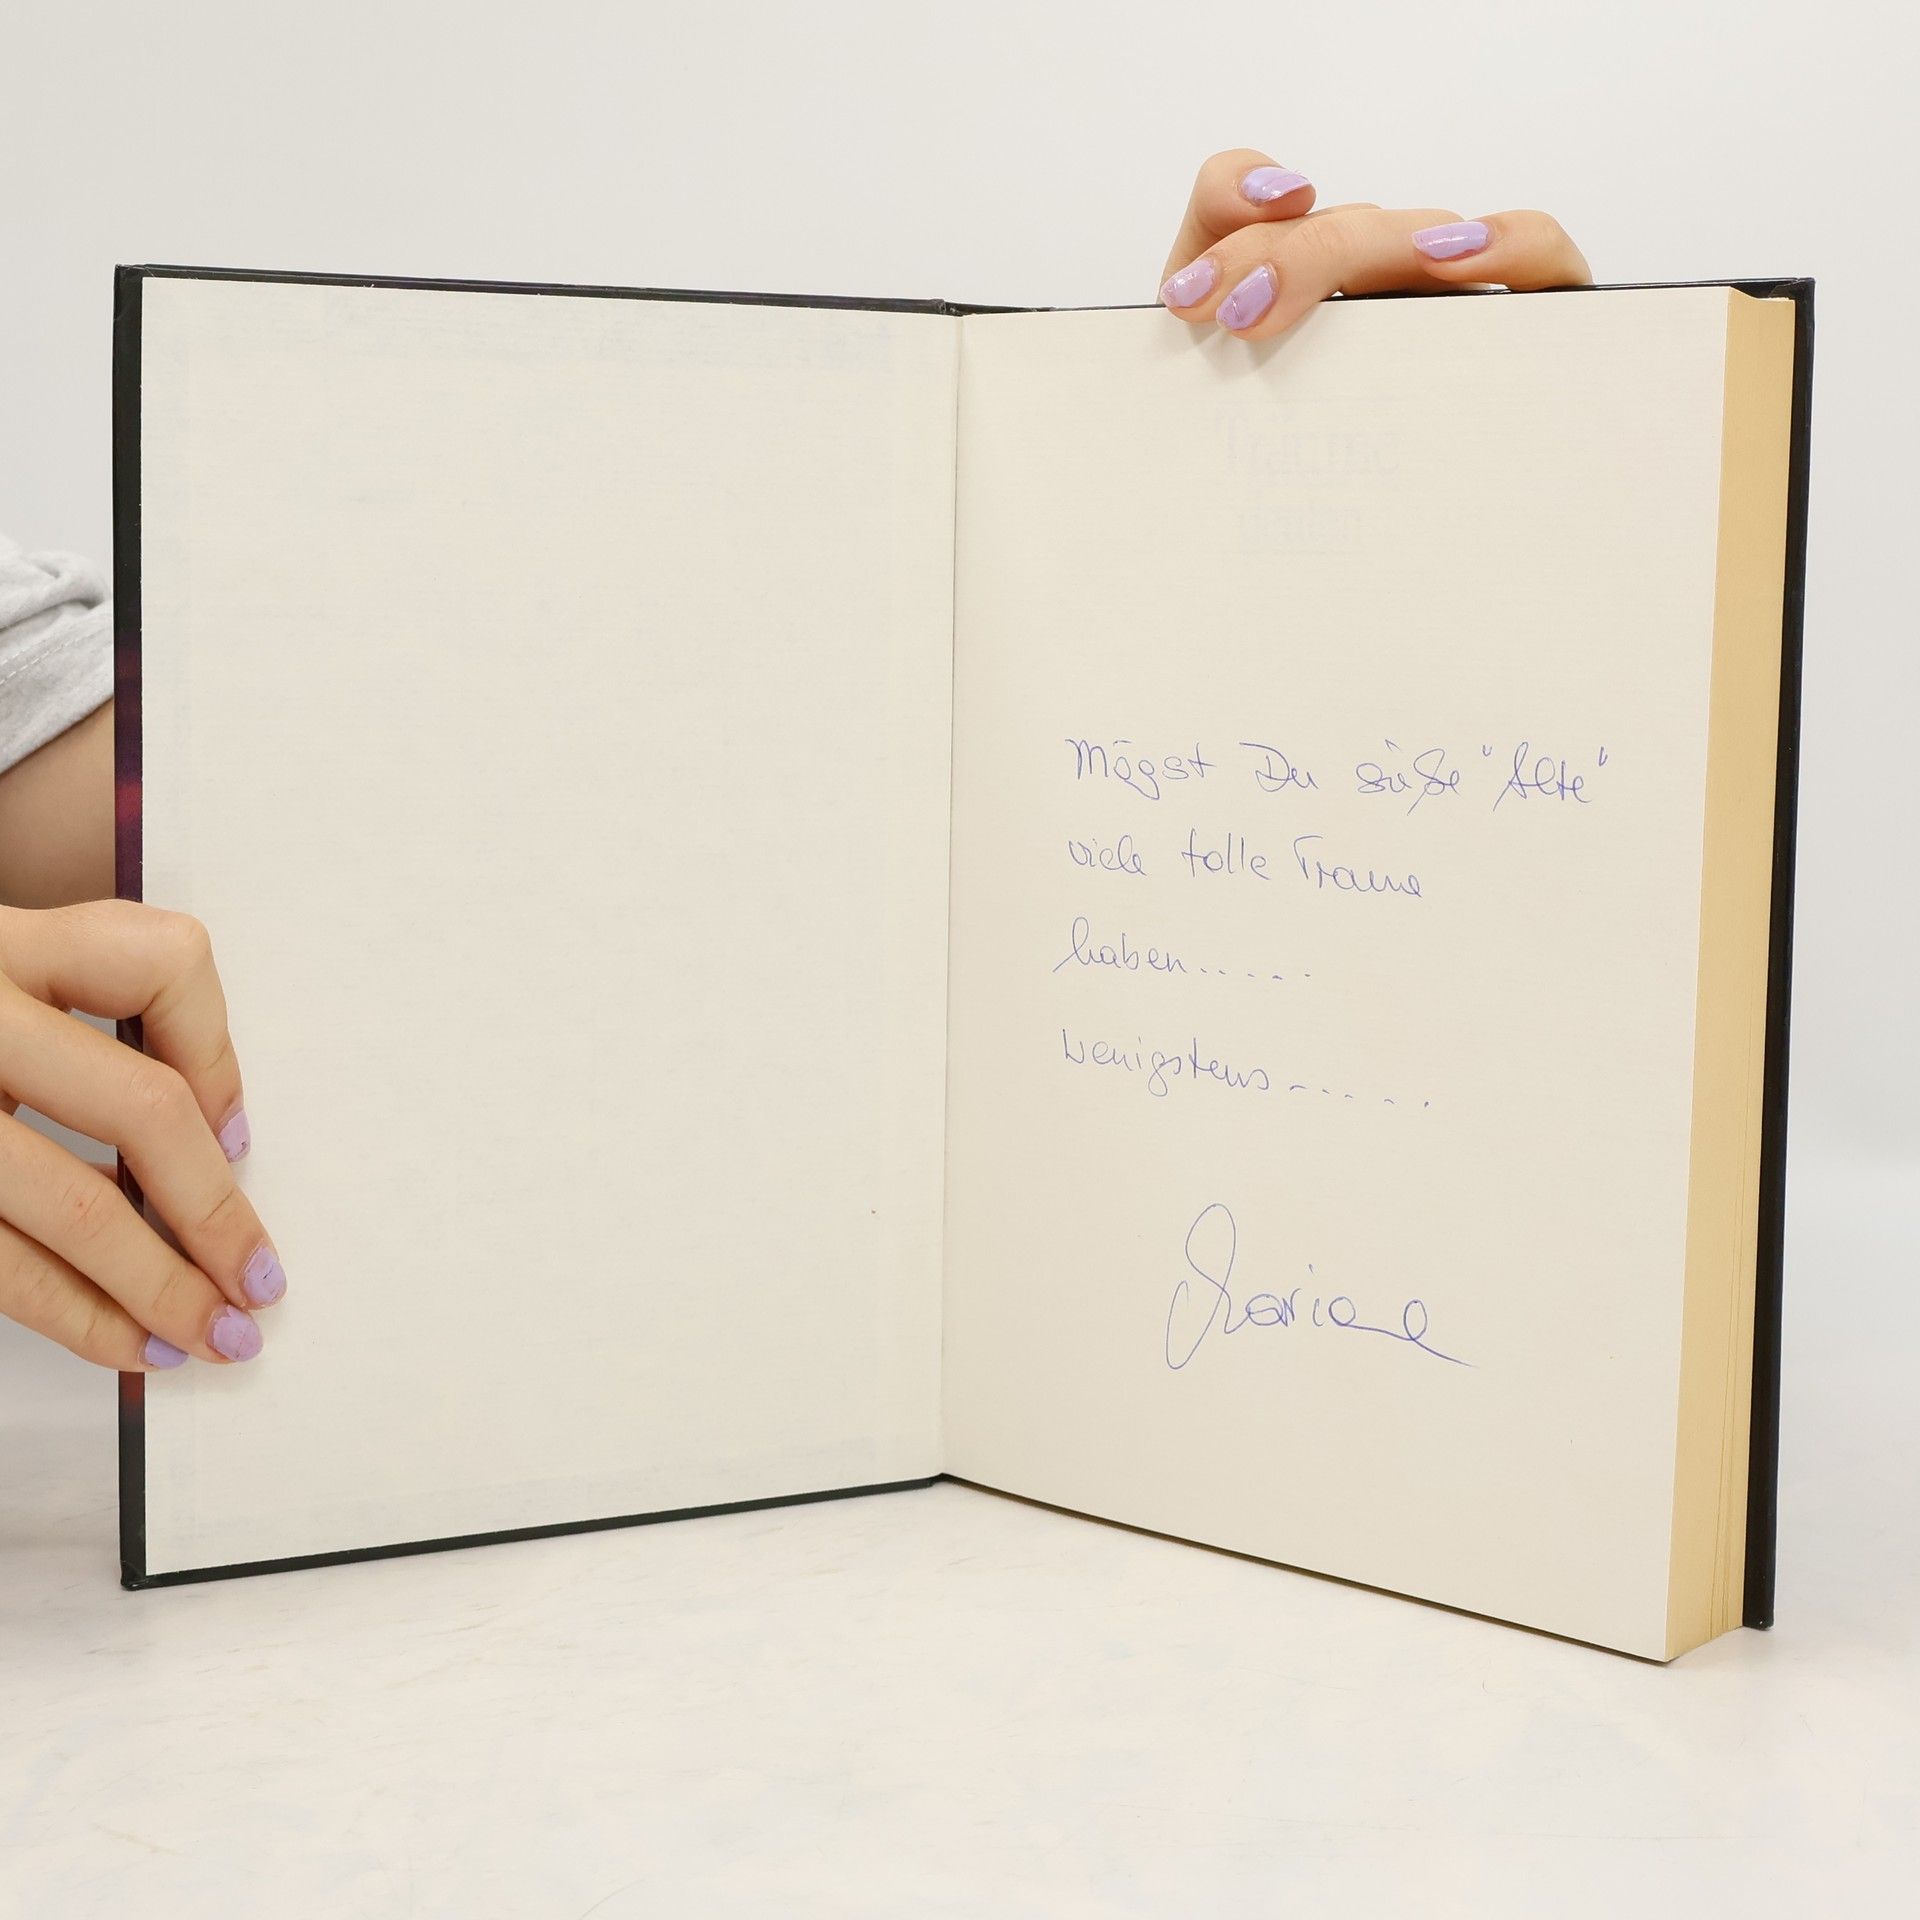 Mögst Du süße "Alte"
viele tolle Traume
haben.....
wenigstens.....